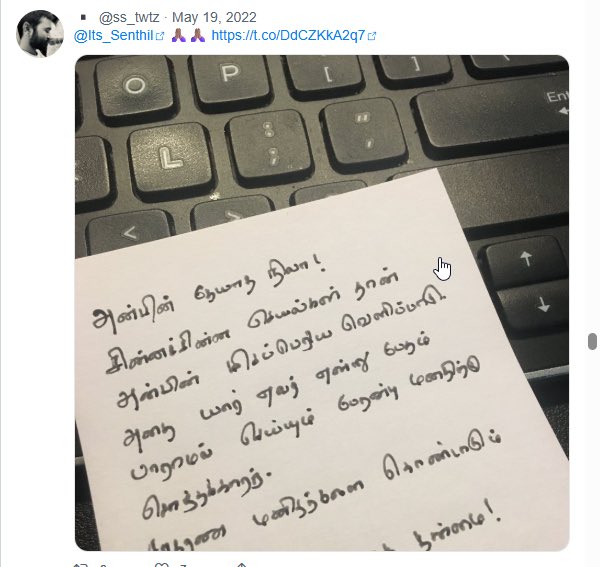 @ss_twtz · May 19, 2022
@Its_Senthil https://t.co/DdCZKkA2q7
O P [ ]
Ent
L : ; " '
< >
அன்பின் தேயாத நிலா!
சின்னச்சின்ன செயல்கள் தான்
அன்பின் மிகப்பெரிய வெளிப்பாடு.
அதை யார் எவர் என்று பேதம்
பாராமல் செய்யும் பேரன்பு மனதிற்கு
சொந்தக்காரர்.
மனிதர்களை கொண்டாடும்